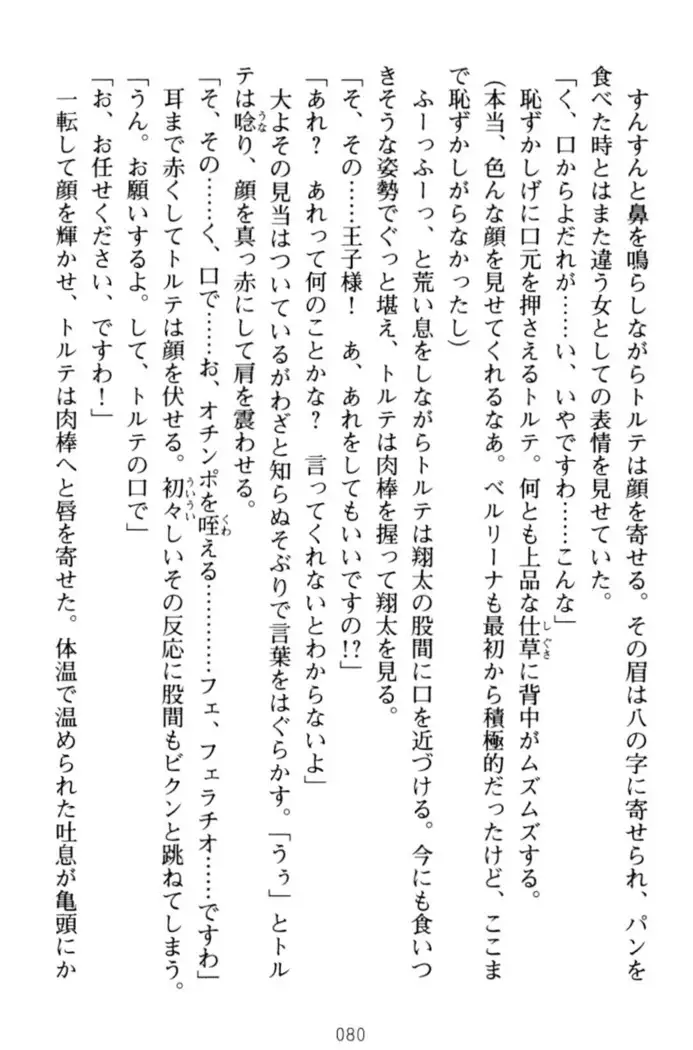 すんすんと鼻を鳴らしながらトルテは顔を寄せる。その眉は八の字に寄せられ、パンを
食べた時とはまた違う女としての表情を見せていた。
「く、口からよだれが……い、いやですわ……こんな」
恥ずかしげに口元を押さえるトルテ。何とも上品な仕草に背中がムズムズする。
（本当、色んな顔を見せてくれるなあ。ベルリーナも最初から積極的だったけど、ここま
で恥ずかしがらなかったし）
ふーっふーっ、と荒い息をしながらトルテは翔太の股間に口を近づける。今にも食いつ
きそうな姿勢でぐっと堪え、トルテは肉棒を握って翔太を見る。
「そ、その……王子様！　あ、あれをしてもいいですの!?」
「あれ？　あれって何のことかな？　言ってくれないとわからないよ」
大よその見当はついているがわざと知らぬそぶりで言葉をはぐらかす。「うぅ」とトル
テは唸り、顔を真っ赤にして肩を震わせる。
「そ、その……く、口で……お、オチンポを咥える…………フェ、フェラチオ……ですわ」
耳まで赤くしてトルテは顔を伏せる。初々しいその反応に股間もビクンと跳ねてしまう。
「うん。お願いするよ。して、トルテの口で」
「お、お任せください、ですわ！」
一転して顔を輝かせ、トルテは肉棒へと唇を寄せた。体温で温められた吐息が亀頭にか
080